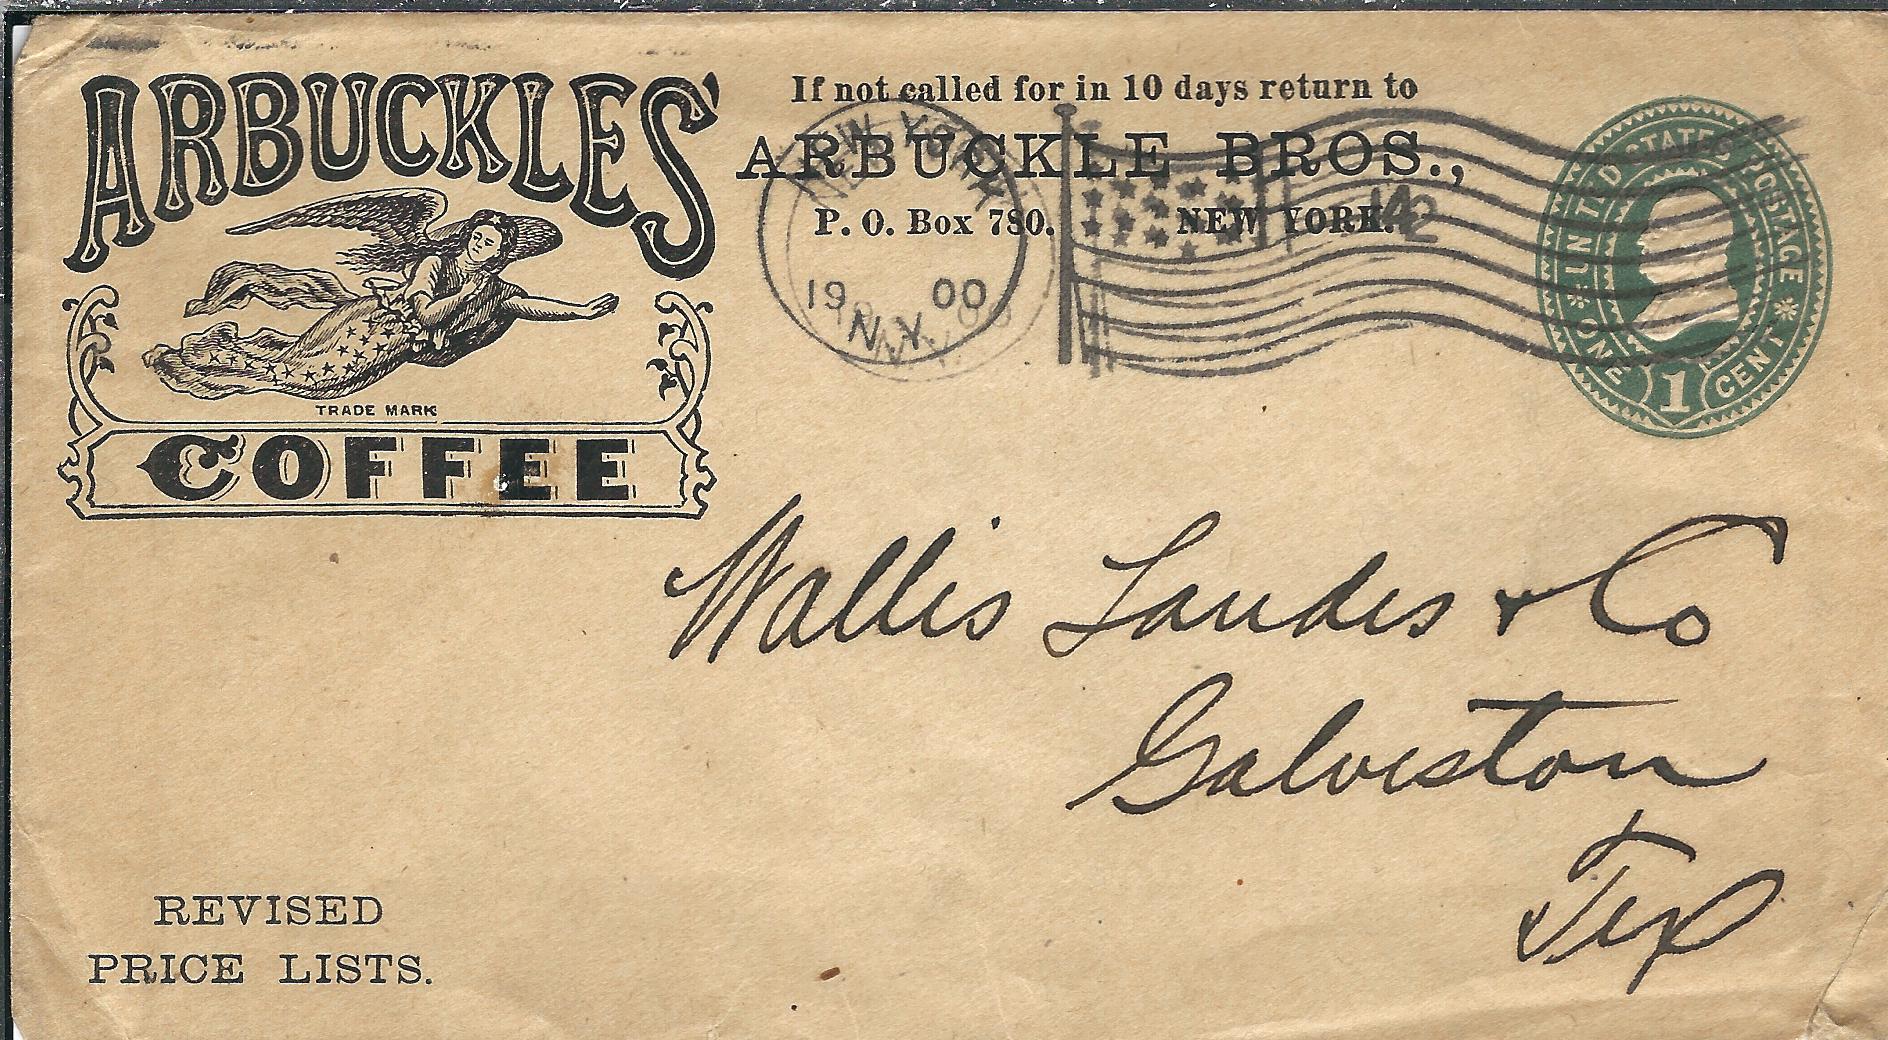 ARBUCKLES'
TRADE MARK
COFFEE
If not called for in 10 days return to
ARBUCKLE BROS.,
P. O. Box 780. NEW YORK.
NEW YORK
19 00
N.Y.
UNITED STATES POSTAGE
ONE 1 CENT
Wallis Landes & Co
Galveston
Tex
REVISED
PRICE LISTS.